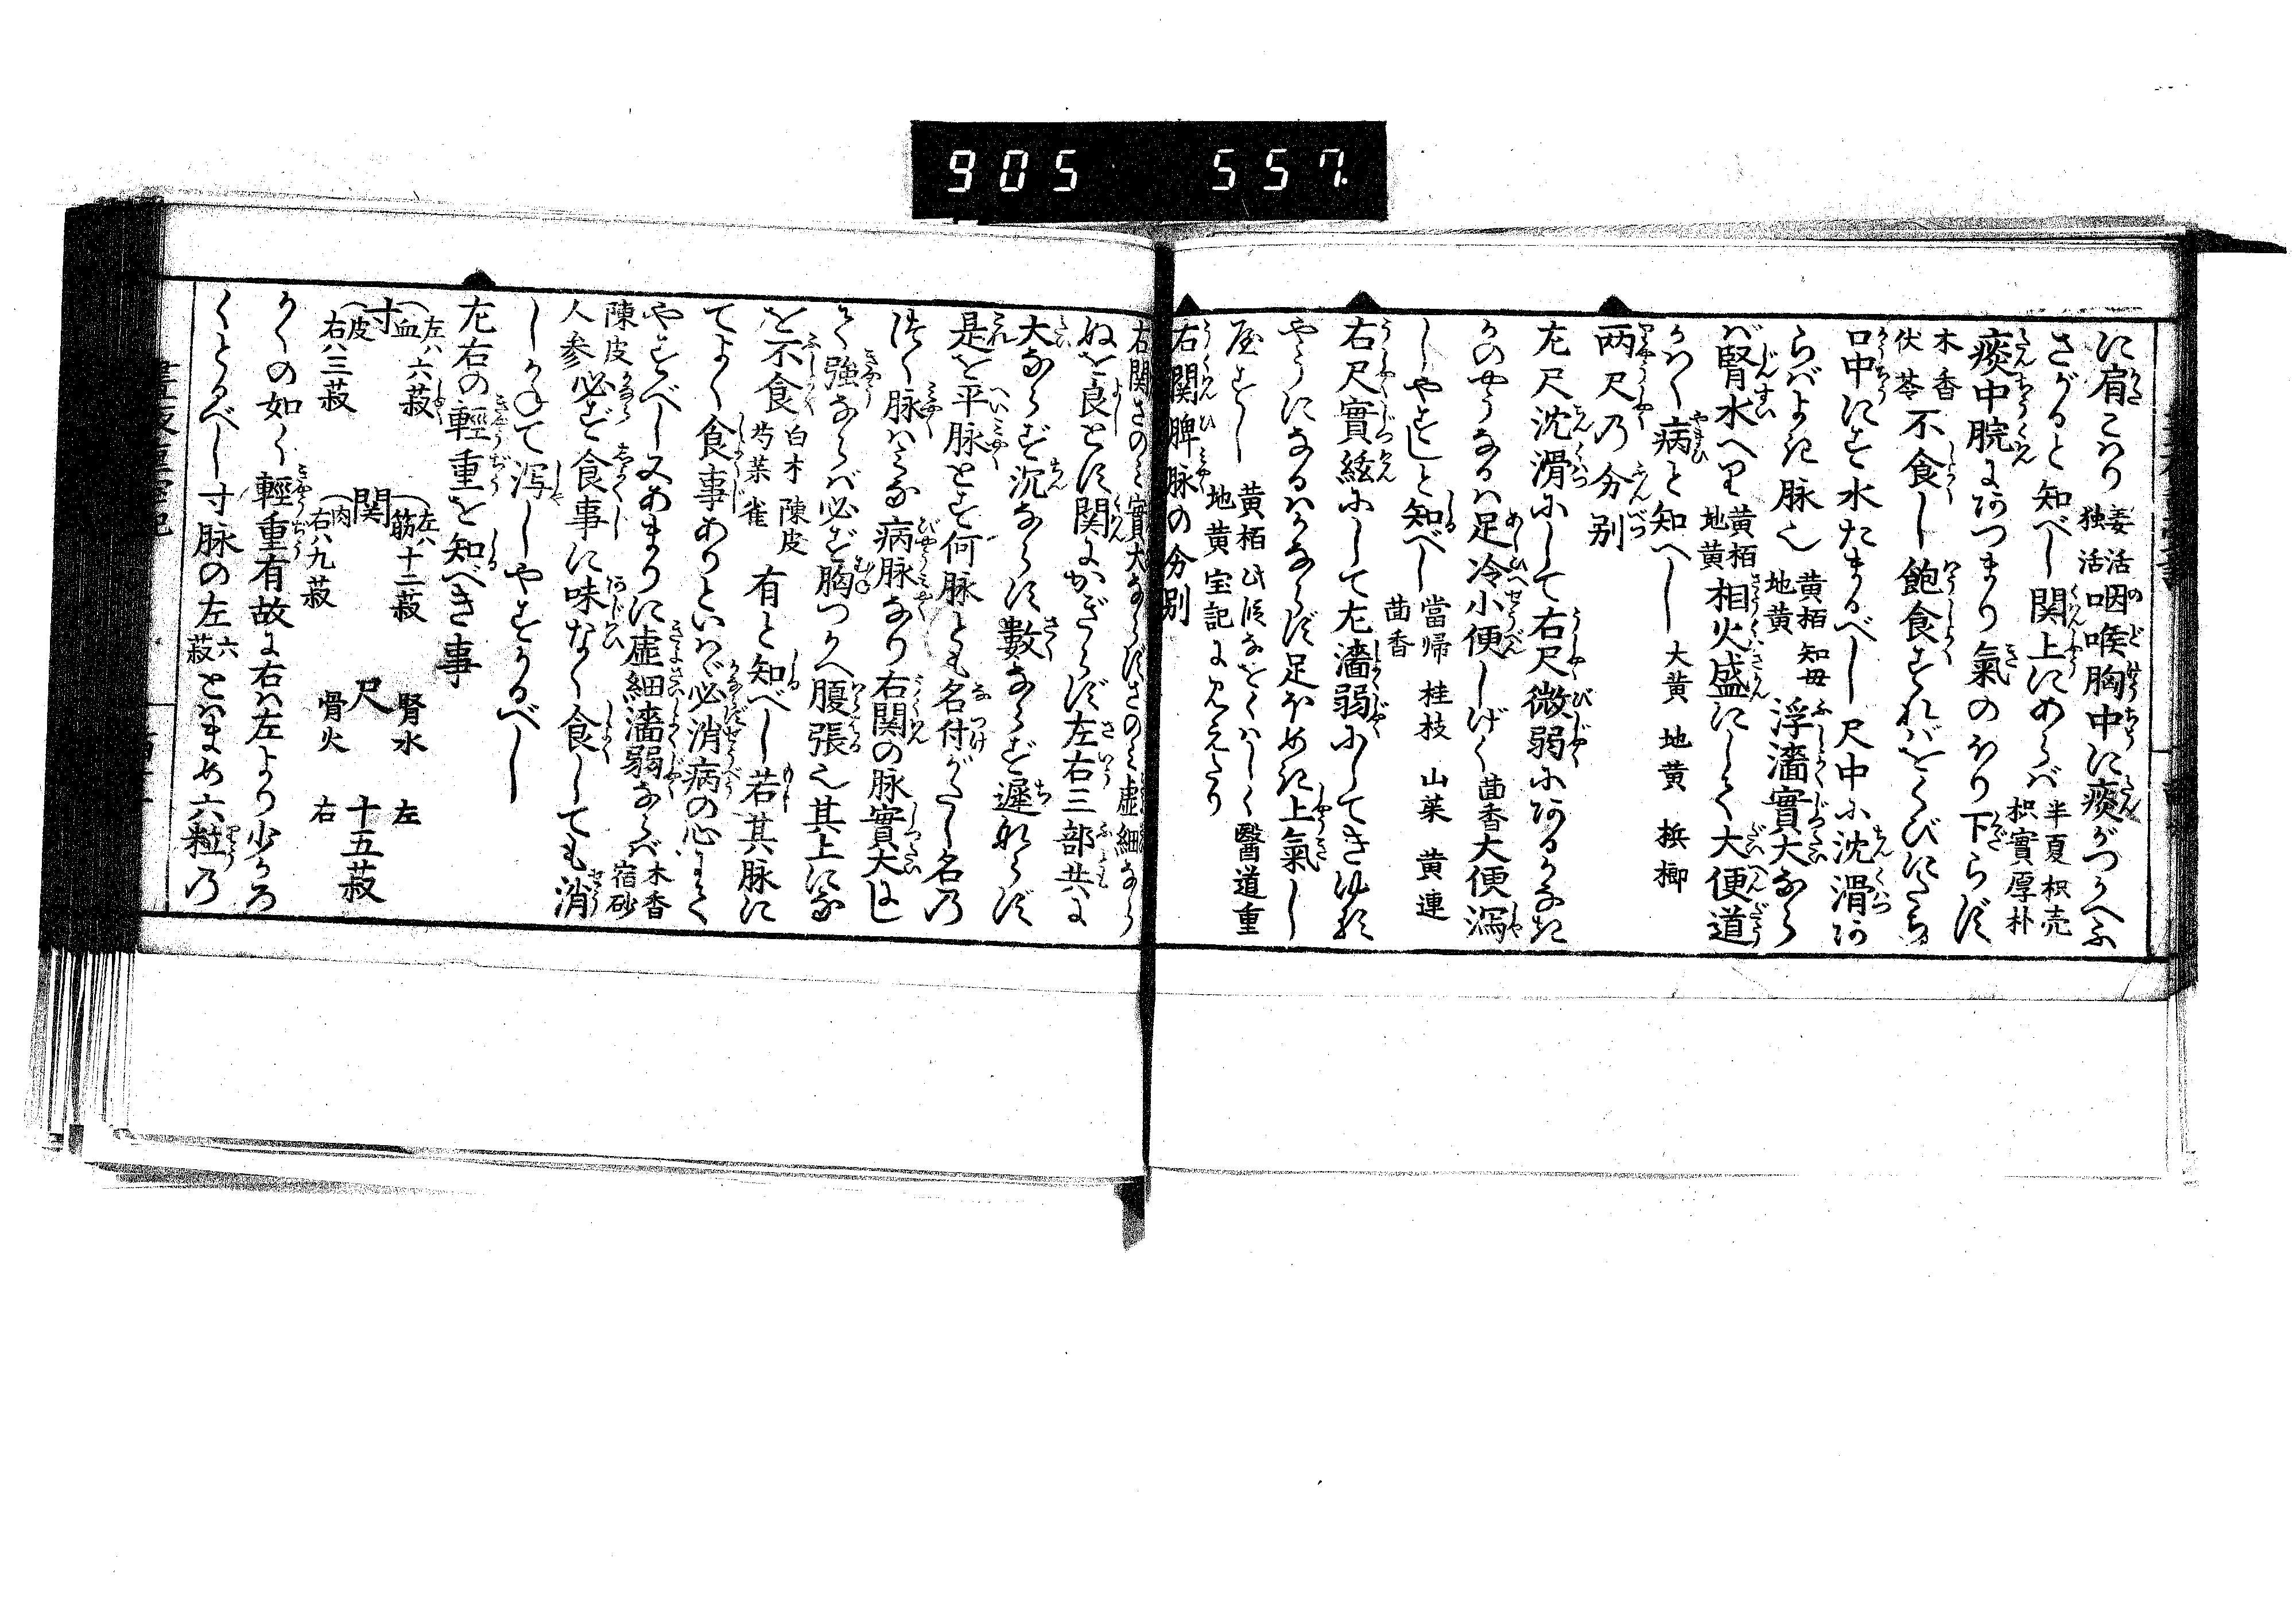 905 557.
に肩こはり 姜活 独活 咽喉胸中に痰がつかへふ
さがると知べし関上にあらバ 半夏 枳壳 枳實 厚朴
痰中脘よりあつまり氣のぼり下らず
木香 伏苓 不食し飽食すれバをくびにたち
口中にす水たまるべし尺中に沈滑な
らバよき脉也 黄栢 知母 地黄 浮濇實大なら
バ腎水へり 黄栢 地黄 相火盛にして大便道
かわく病と知へし 大黄 地黄 梹榔
両尺乃分别
左尺沈滑にして右尺微弱に
かのやうなるハ足冷小便しげく 茴香 大便瀉
しやすしと知べし 當帰 桂枝 山茱 黄連 茴香
右尺實絃にして左濇弱にして
やうになるハかならず足ほめき上氣し
やすし 黄栢 地黄 此後なをくハしく醫道重宝記に見えたり
右関脾脉の分别
右関さのミ實大ならずさのミ虚細なら
ぬを良とす関にかぎらず左右三部共に
大ならず沉ならず數ならず遲ならず
是を平脉とす何脉とも名付がたし名乃
つく脉ハミな病脉なり右関の脉實大にし
て強ならバ必ず胸つかへ腹張也其上にな
を不食 白木 陳皮 芍薬 雀 有と知べし若其脉に
てよく食事ありといはゞ必消病の心にて
やすべし又あまりに虚細濇弱ならバ 木香 宿砂
陳皮 人参 必ず食事に味なく食しても消
しかねて瀉しやすかるべし
左右の輕重を知べき事
寸 血 左ハ六菽 皮 右ハ三菽
関 筋 左ハ十二菽 肉 右ハ九菽
尺 腎水 左 骨火 右 十五菽
かくの如く輕重有故に右は左より少かろ
くとるべし寸脉の左 六菽 とはまめ六粒乃